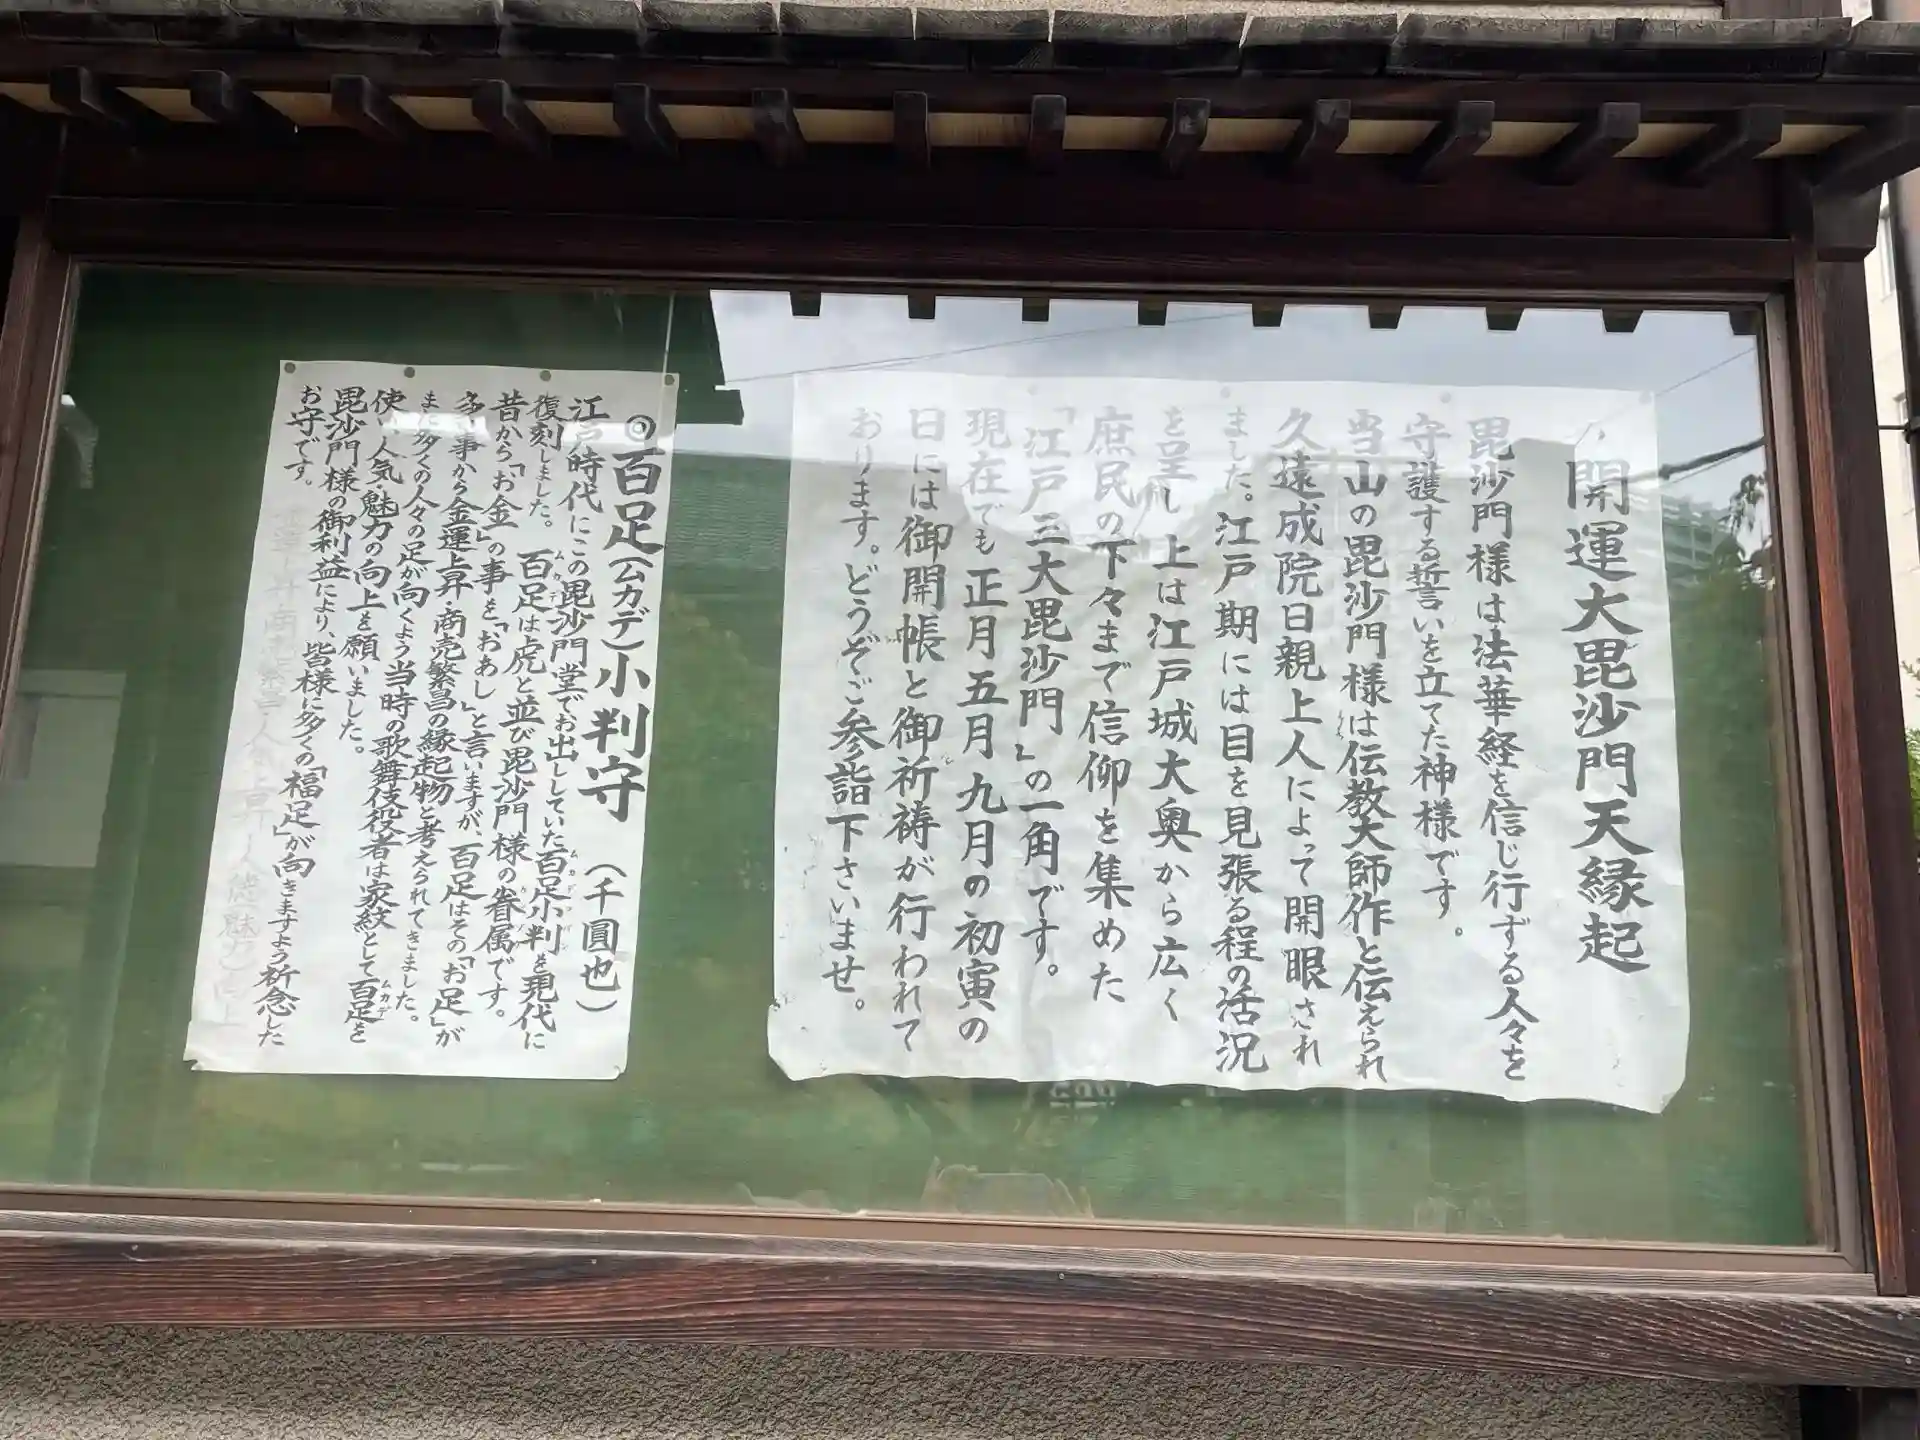 開運大毘沙門天縁起
毘沙門様は法華経を信じ行ずる人々を
守護する誓いを立てた神様です。
当山の毘沙門様は伝教大師作と伝えられ
久遠成院日親上人によって開眼され
ました。江戸期には目を見張る程の活況
を呈し上は江戸城大奥から広く
庶民の下々まで信仰を集めた
「江戸三大毘沙門」の一角です。
現在でも正月五月九月の初寅の
日には御開帳と御祈祷が行われて
おります。どうぞご参詣下さいませ。
◎百足(ムカデ)小判守 (千圓也)
江戸時代にこの毘沙門堂でお出ししていた百足小判を現代に
復刻しました。 百足は虎と並び毘沙門様の眷属です。
昔から「お金」の事を「おあし」と言いますが、百足はその「お足」が
多い事から金運上昇・商売繁昌の縁起物と考えられてきました。
また多くの人々の足が向くよう当時の歌舞伎役者は家紋として百足を
使い人気・魅力の向上を願いました。
毘沙門様の御利益により、皆様に多くの「福足」が向きますよう祈念した
お守です。